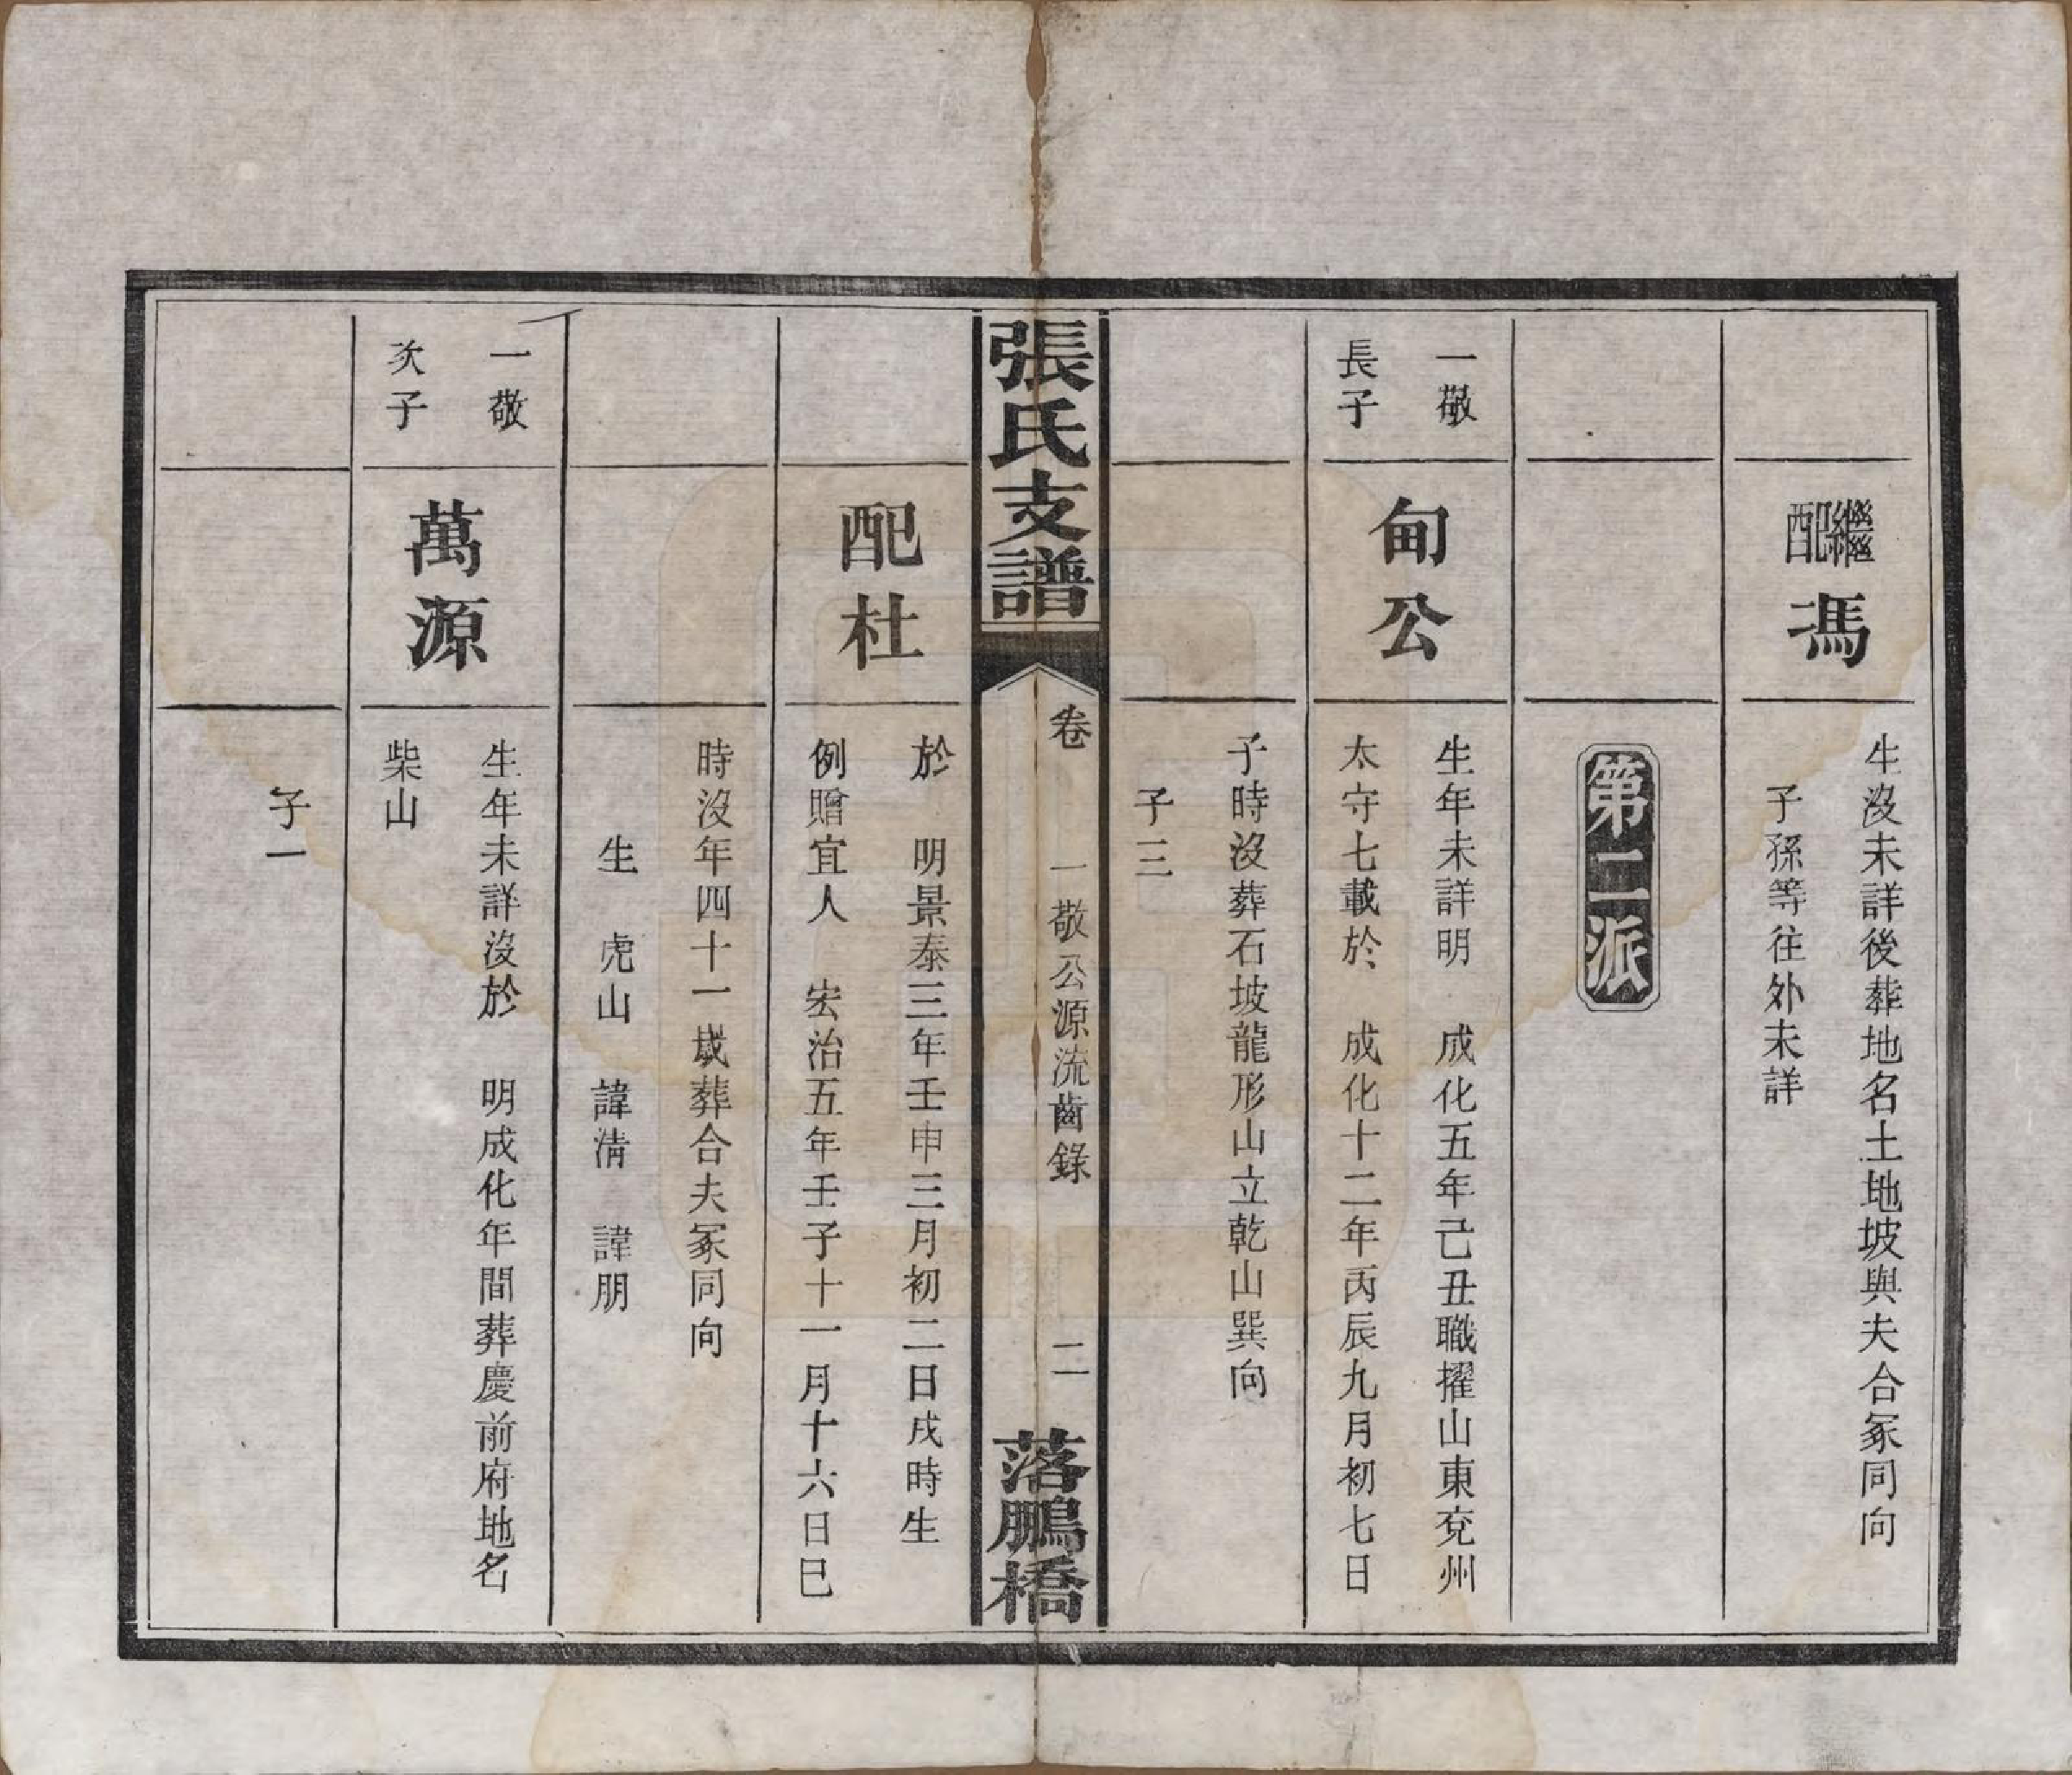 繼配
馮
生沒未詳後葬地名土地坡與夫合冢同向
子孫等往外未詳
第二派
一敬
長子
甸公
生年未詳明　成化五年己丑職擢山東兗州
太守七載於　成化十二年丙辰九月初七日
子時沒葬石坡龍形山立乾山巽向
子三
張氏支譜
卷　一敬公源流齒錄　二
落鵬橋
配杜
於　明景泰三年壬申三月初二日戌時生
例贈宜人　宏治五年壬子十一月十六日巳
時沒年四十一歲葬合夫冢同向
生　虎山　諱淸　諱朋
一敬
次子
萬源
生年未詳沒於　明成化年間葬慶前府地名
柴山
子一